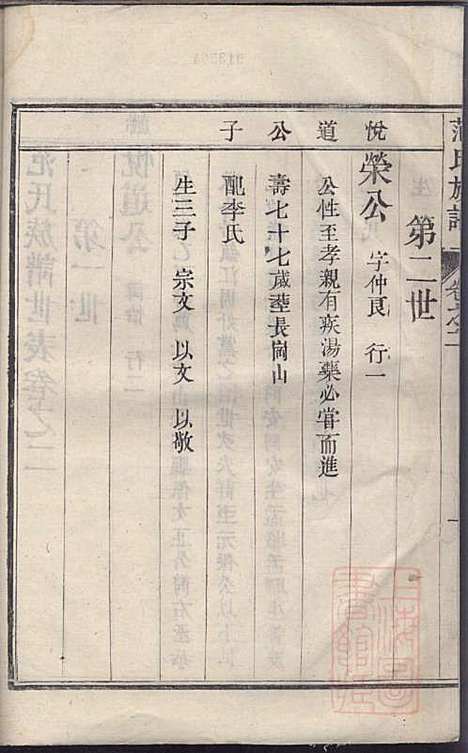 范氏族譜
卷之二
第二世
悅道公子
榮公 字仲良 行一
公性至孝親有疾湯藥必嘗而進
壽七十七歲塟長崗山
配李氏
生三子 宗文 以文 以敬